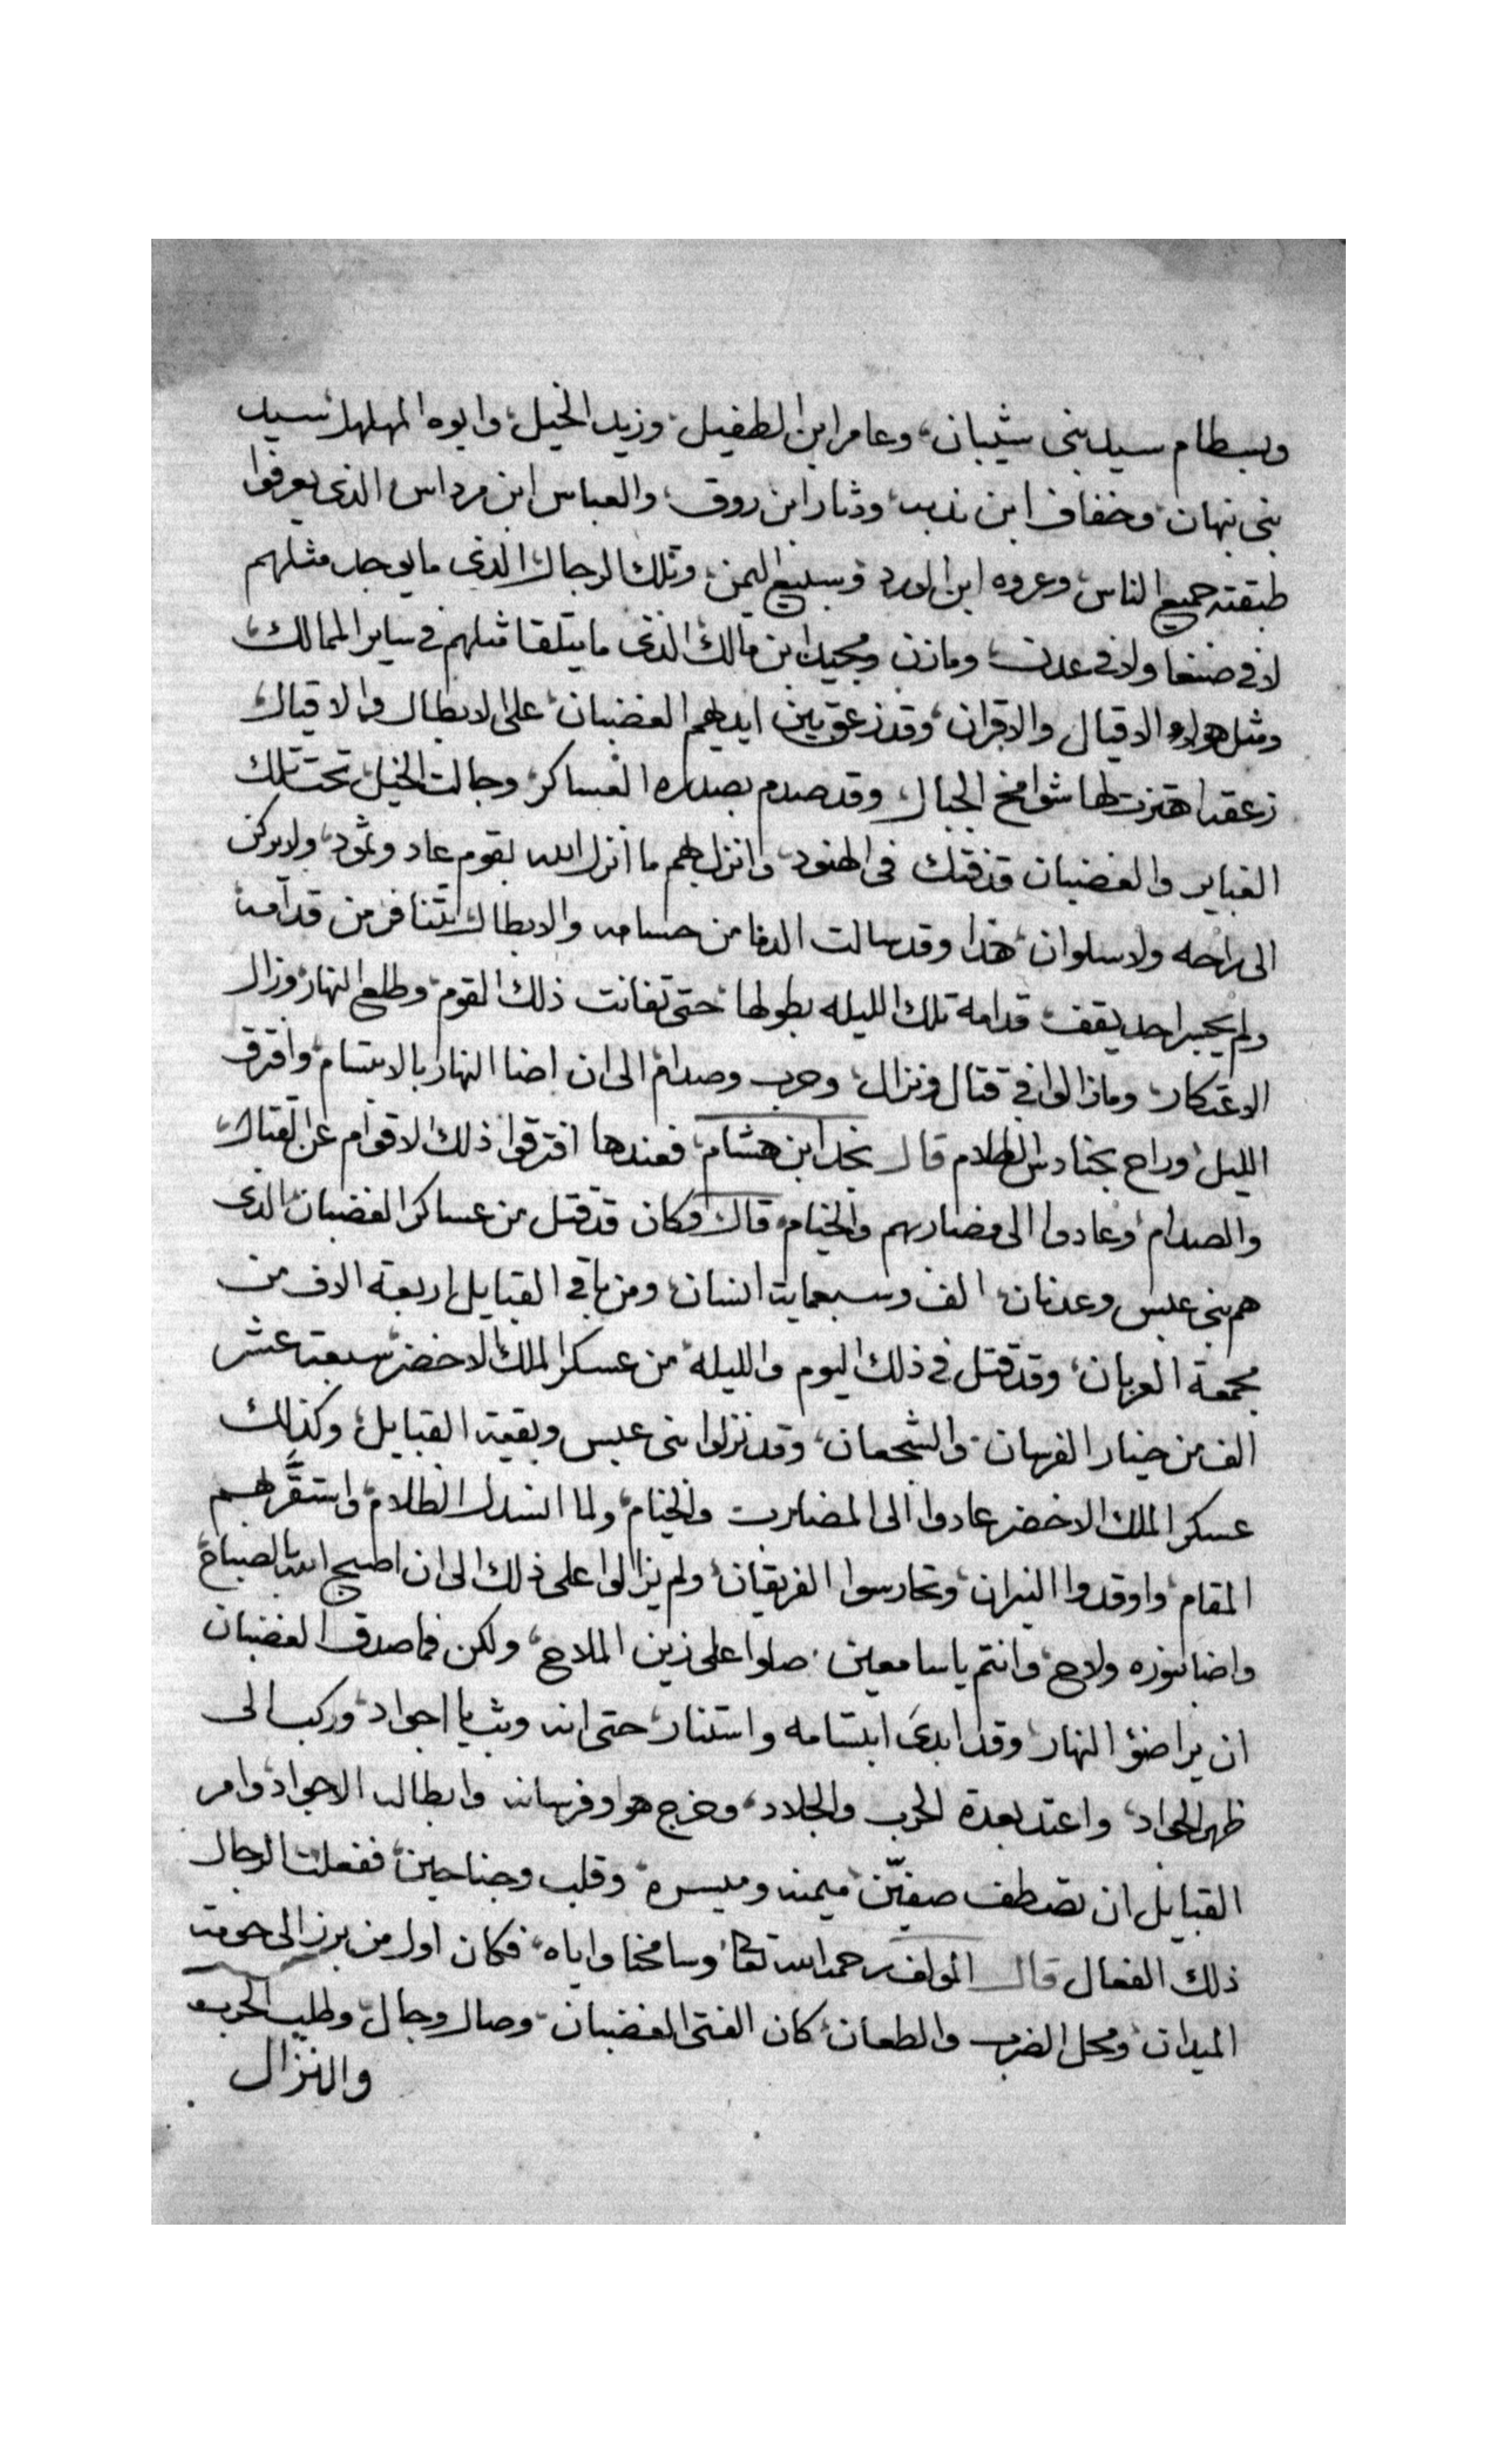 وبسطام سيد بنى شيبان، وعامر ابن الطفيل، وزيد الخيل، وابوه المهلهل سيد
بنى نبهان، وخفاف ابن ندبه، ودثار ابن روق، والعباس ابن مرداس الذى يعرفوا
طبقته جميع الناس، وعروه ابن الورد وسبيع اليمن، وتلك الرجال الذى ما يوجد مثلهم
لا فى صنعا ولا فى عدن، ومازن ومجيد ابن مالك الذى ما يتلقا مثلهم فى ساير الممالك،
ومثل هولاء الاقيال والاقران، وقد زعق بين ايديهم الغضبان، على الابطال والاقيال،
زعقه اهتزت لها شوامخ الجبال، وقد صدم بصدره العساكر، وجالت الخيل تحت تلك
الغباير والغضبان قد فتك فى الهنود، وانزل بهم ما انزل الله بقوم عاد وثمود، ولا يركن
الى راحه ولا سلوان، هذا وقد سالت الدما من حسامه والابطال تتنافر من قدامه
ولم يجسر احد يقف قدامه تلك الليله بطولها، حتى تفانت ذلك القوم، وطلع النهار وزال
الاعتكار، ومازالوا فى قتال ونزال، وحرب وصدام الى ان اضا النهار بالابتسام، وافترق
الليل، وراح بحنادس الظلام قال نجد ابن هشام، فعندها افترقوا ذلك الاقوام عن القتال،
والصدام، وعادوا الى مضاربهم والخيام، قال وكان قد قتل من عساكر الغضبان الذى
هم بنى عبس وعدنان، الف وسبعماية انسان، ومن باقى القبايل اربعة الاف من
مجمعة العربان، وقد قتل فى ذلك اليوم والليله، من عسكر الملك الاخضر سبعة عشر
الف من خيار الفرسان، والشجعان، وقد نزلوا بنى عبس وبقية القبايل، وكذلك
عسكر الملك الاخضر عادوا الى المضارب والخيام، ولما انسدل الظلام، واستقَّر بهم
المقام، واوقدوا النيران، وتحارسوا الفريقان، ولم يزالوا على ذلك الى ان اصبح الله بالصباح،
واضا بنوره ولاح، وانتم يا سامعين، صلوا على زين الملاح، ولكن فما صدق الغضبان
ان يرا ضؤ النهار، وقد ابدى ابتسامه واستنار، حتى انه وثب يا اجواد، وركب الى
ظهر الجواد، واعتد بعدة الحرب والجلاد، وخرج هو وفرسانه وابطاله الاجواد، وامر
القبايل ان تصطف صفيّن ميمنه وميسره، وقلب وجناحين، ففعلت الرجال
ذلك الفعال قال المولف رحمه الله تعالى، وسامحنا واياه، فكان اول من برز الى حومة
الميدان، ومحل الضرب والطعان، كان الفتى الغضبان، وصال وجال، وطلب الحرب
والنزال